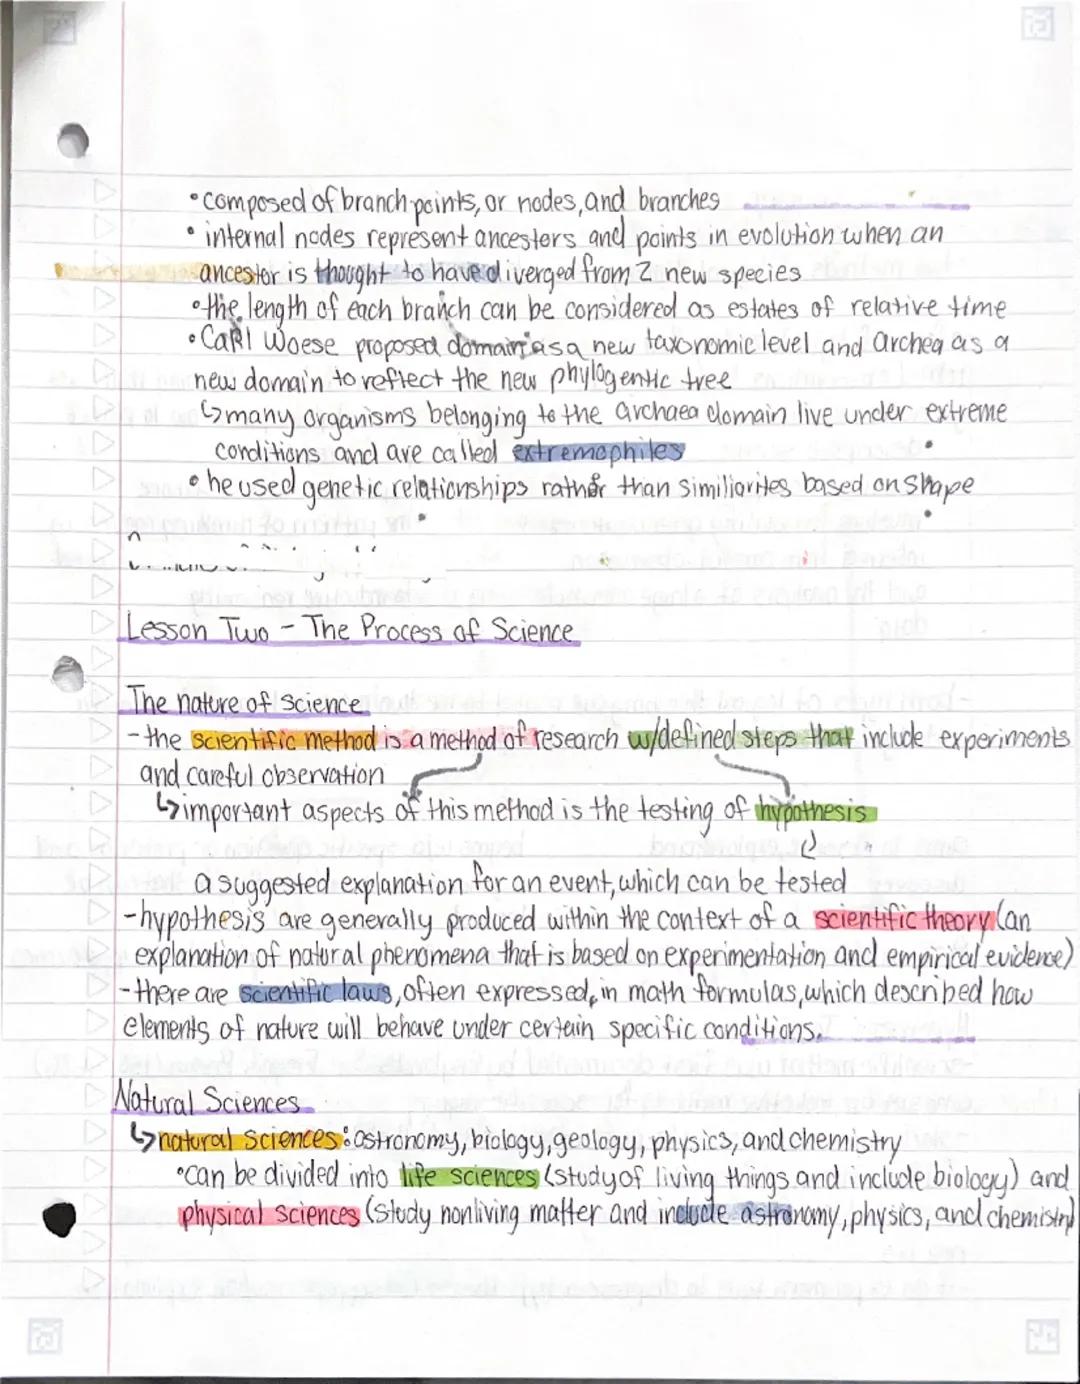 •composed of branch points, or nodes, and branches
• internal nodes represent ancestors and points in evolution when an
ancestor is thought to have diverged from 2 new species
•the length of each branch can be considered as estates of relative time
•Carl Woese proposed domain as a new taxonomic level and Archea as a
new domain to reflect the new phylogentic tree
↳many organisms belonging to the archaea domain live under extreme
conditions and are called extremophiles
• he used genetic relationships rather than similiarites based on shape
Lesson Two - The Process of Science
The nature of science
-the scientific method is a method of research w/defined steps that include experiments
and careful observation
↳important aspects of this method is the testing of hypothesis
a suggested explanation for an event, which can be tested
-hypothesis are generally produced within the context of a scientific theory (an
explanation of natural phenomena that is based on experimentation and empirical evidence)
-there are scientific laws, often expressed, in math formulas, which described how
elements of nature will behave under certain specific conditions.
Natural Sciences
↳natural sciences: astronomy, biology, geology, physics, and chemistry
•can be divided into life sciences (study of living things and include biology) and
physical sciences (study nonliving matter and include astronomy, physics, and chemistry)